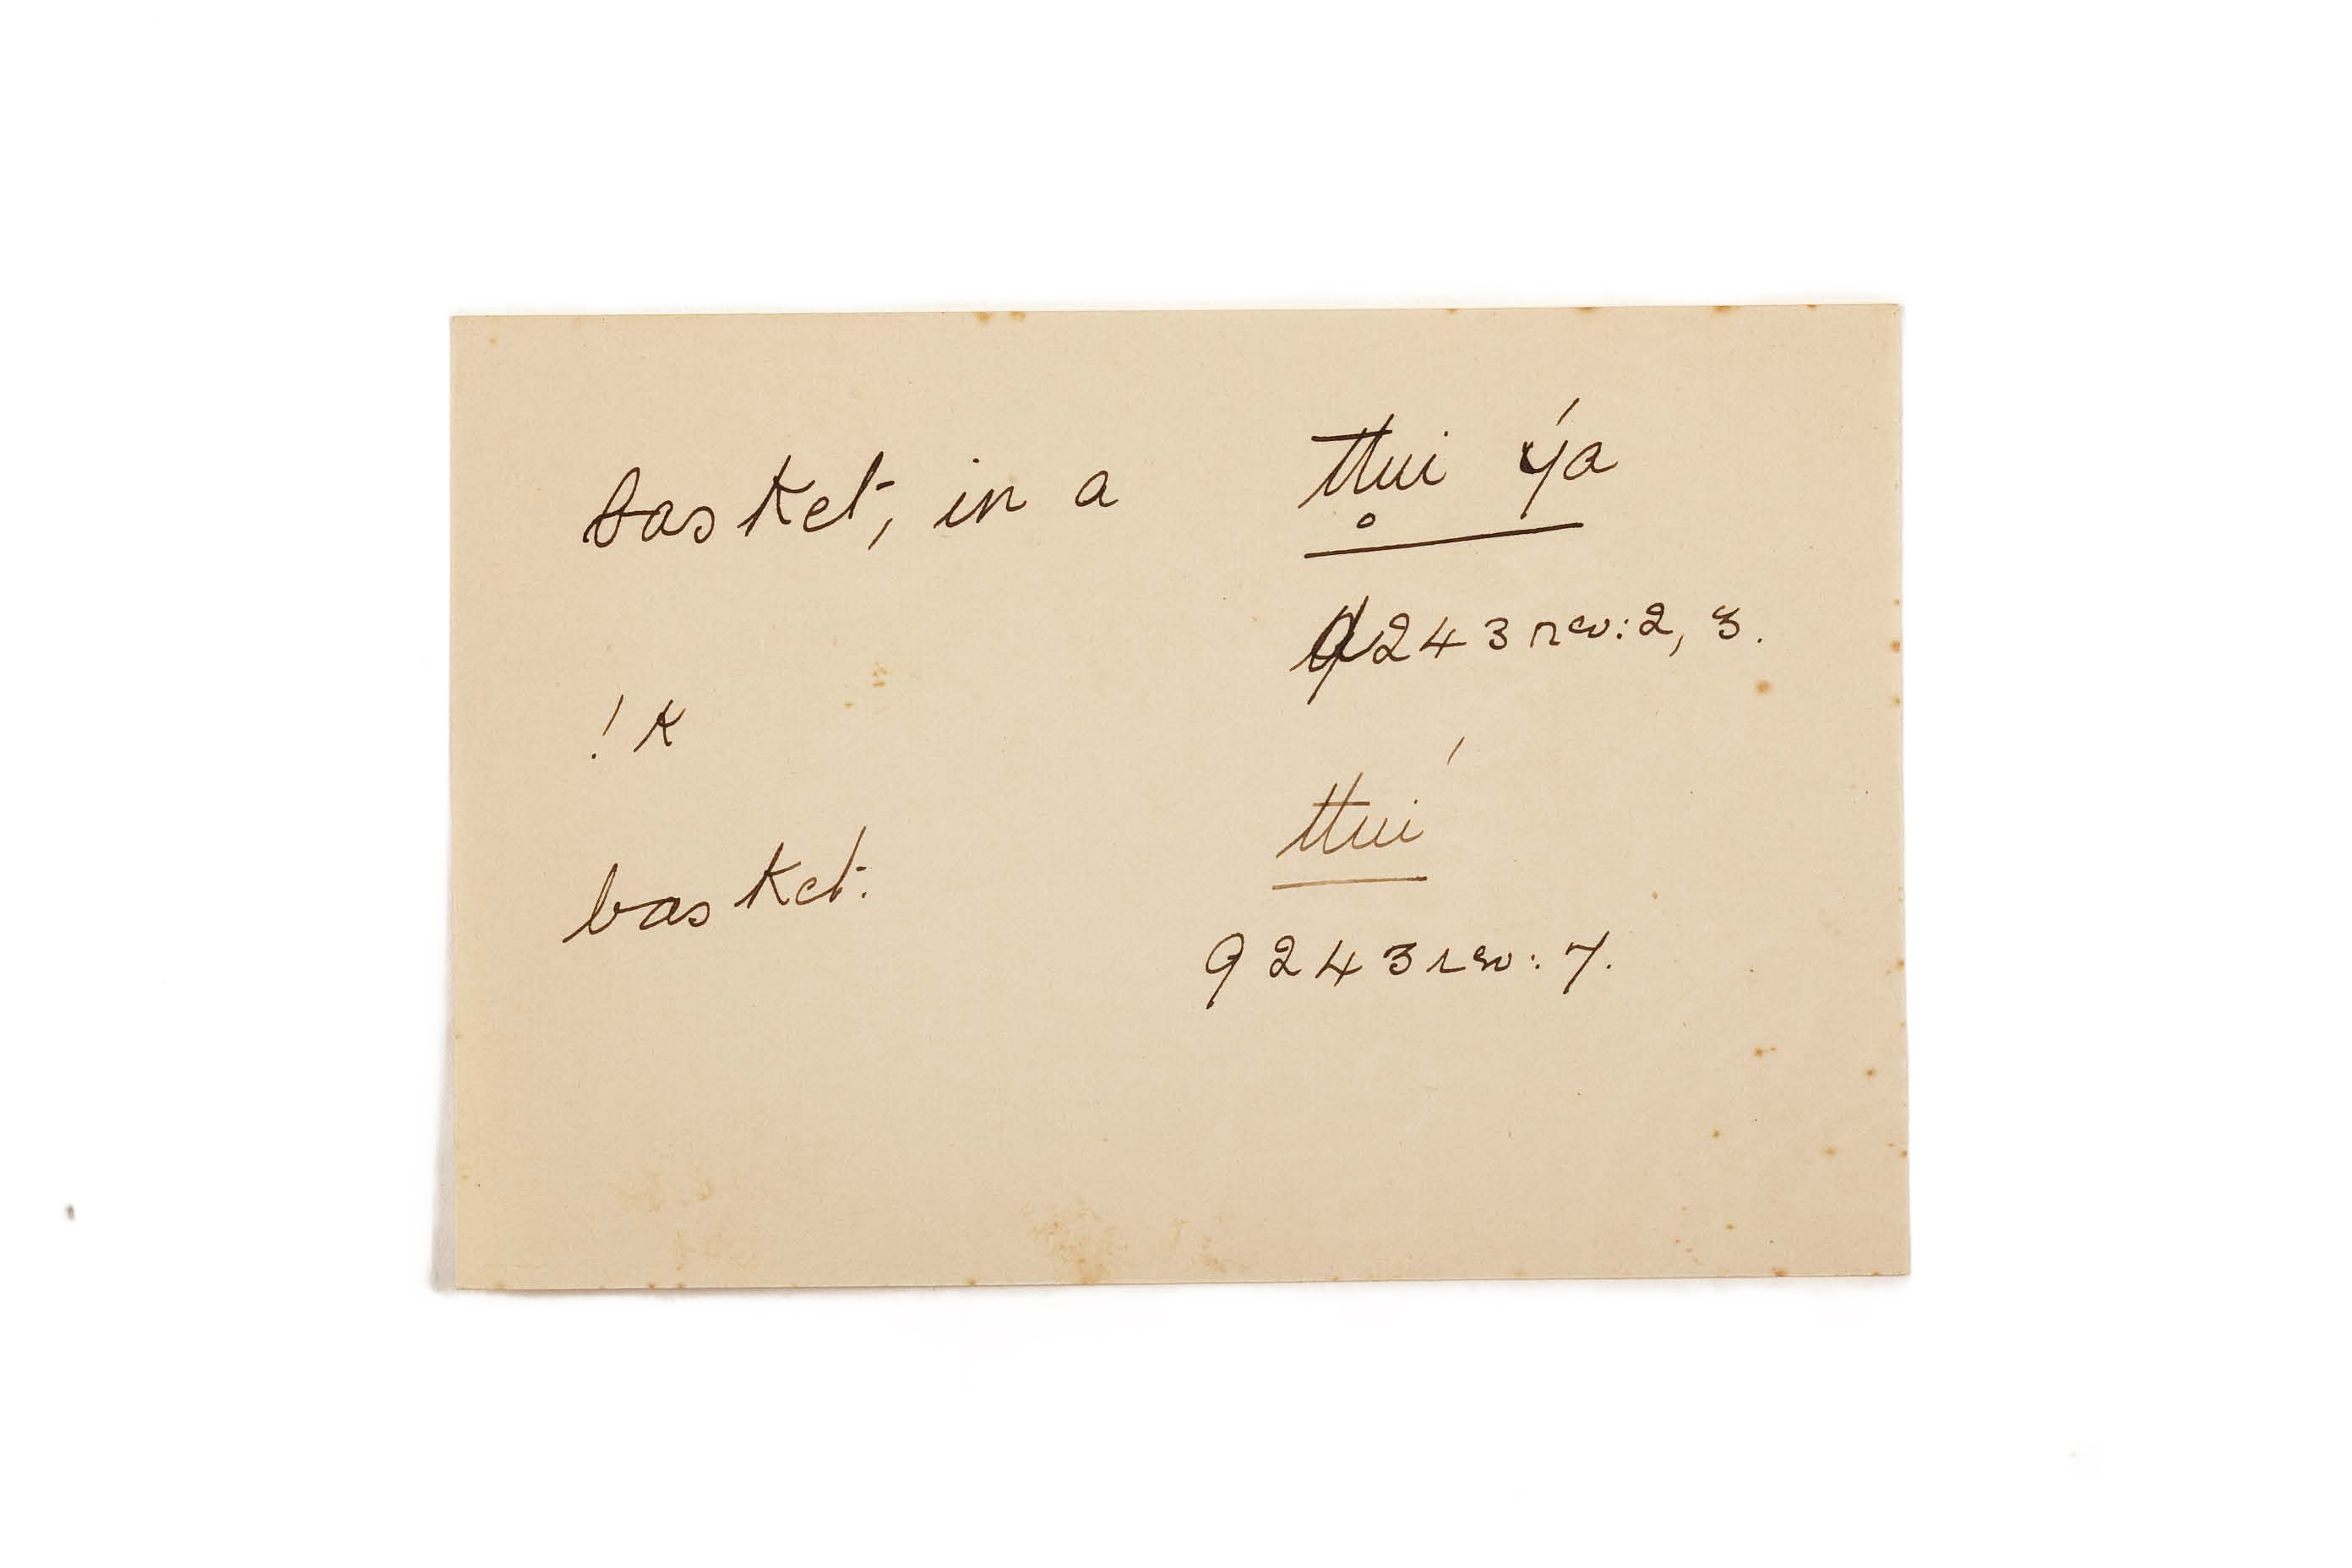 basket, in a ttui ýa
9243 rev: 2, 3.
! k
basket. ttuí
9243 rev: 7.